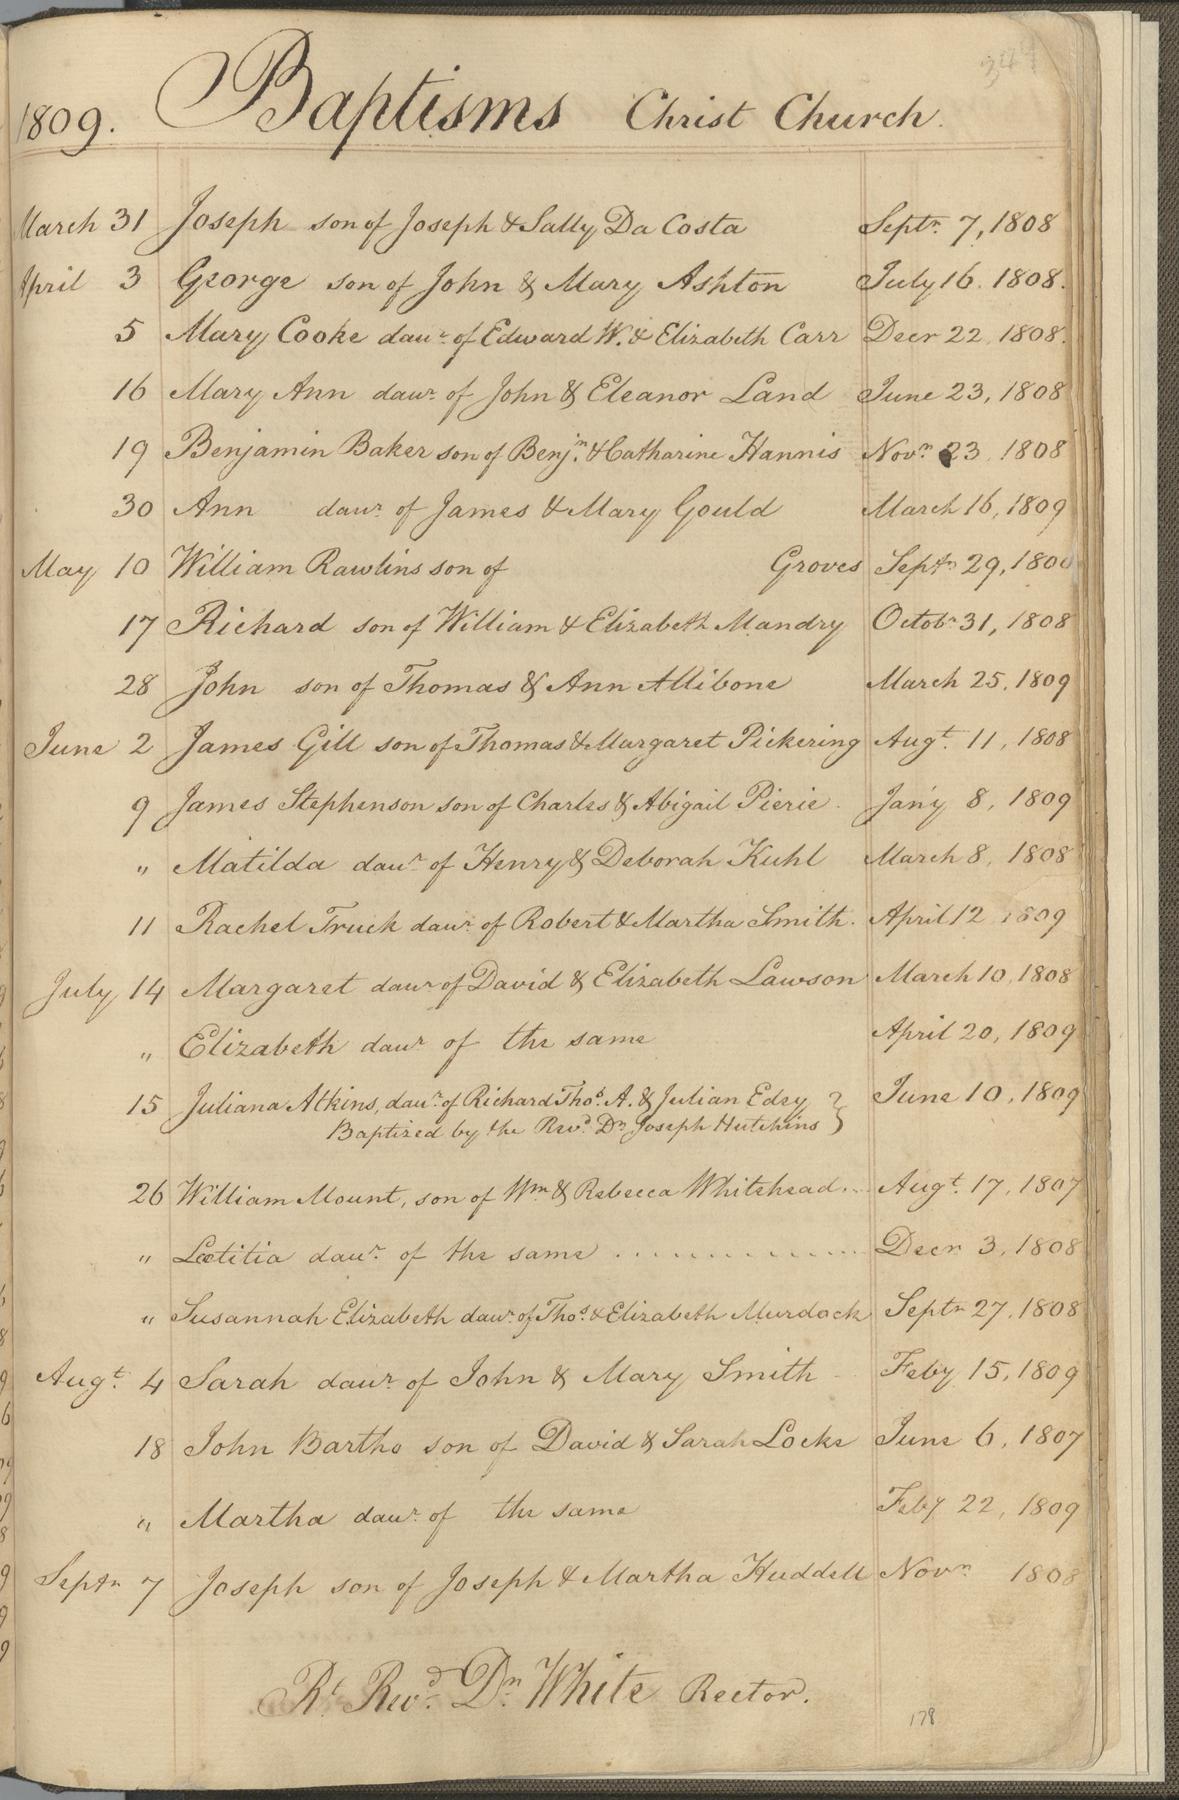 1809. Baptisms Christ Church.
March 31 Joseph son of Joseph & Sally Da Costa Septr. 7, 1808
April 3 George son of John & Mary Ashton July 16. 1808.
5 Mary Cooke daur. of Edward W. & Elizabeth Carr Decr 22, 1808.
16 Mary Ann daur. of John & Eleanor Land June 23, 1808
19 Benjamin Baker son of Benjn. & Catharine Hannis Novr. 23. 1808
30 Ann daur. of James & Mary Gould March 16, 1809
May 10 William Rawlins son of Groves Septr. 29, 1808
17 Richard son of William & Elizabeth Mandry Octobr. 31, 1808
28 John son of Thomas & Ann Allibone March 25, 1809
June 2 James Gill son of Thomas & Margaret Pickering Augt. 11, 1808
9 James Stephenson son of Charles & Abigail Pierie. Jan'y 8, 1809
" Matilda daur. of Henry & Deborah Kuhl March 8, 1808
11 Rachel Truck daur. of Robert & Martha Smith. April 12 1809
July 14 Margaret daur. of David & Elizabeth Lawson March 10, 1808
" Elizabeth daur. of the same April 20, 1809
15 Juliana Atkins, daur. of Richard Thos. A. & Julian Edey } June 10, 1809
Baptized by the Revd. Dr. Joseph Hutchins
26 William Mount, son of Wm & Rebecca Whitehead... Augt. 17, 1807
" Lætitia daur. of the same .............. Decr. 3, 1808
" Susannah Elizabeth daur. of Thos. & Elizabeth Murdock Septr. 27, 1808
Augt. 4 Sarah daur. of John & Mary Smith Feby 15, 1809
18 John Bartho son of David & Sarah Locke June 6, 1807
" Martha daur. of the same Feby 22, 1809
Septr. 7 Joseph son of Joseph & Martha Huddell Novr. 1808
Rt. Revd. Dr. White Rector.
178